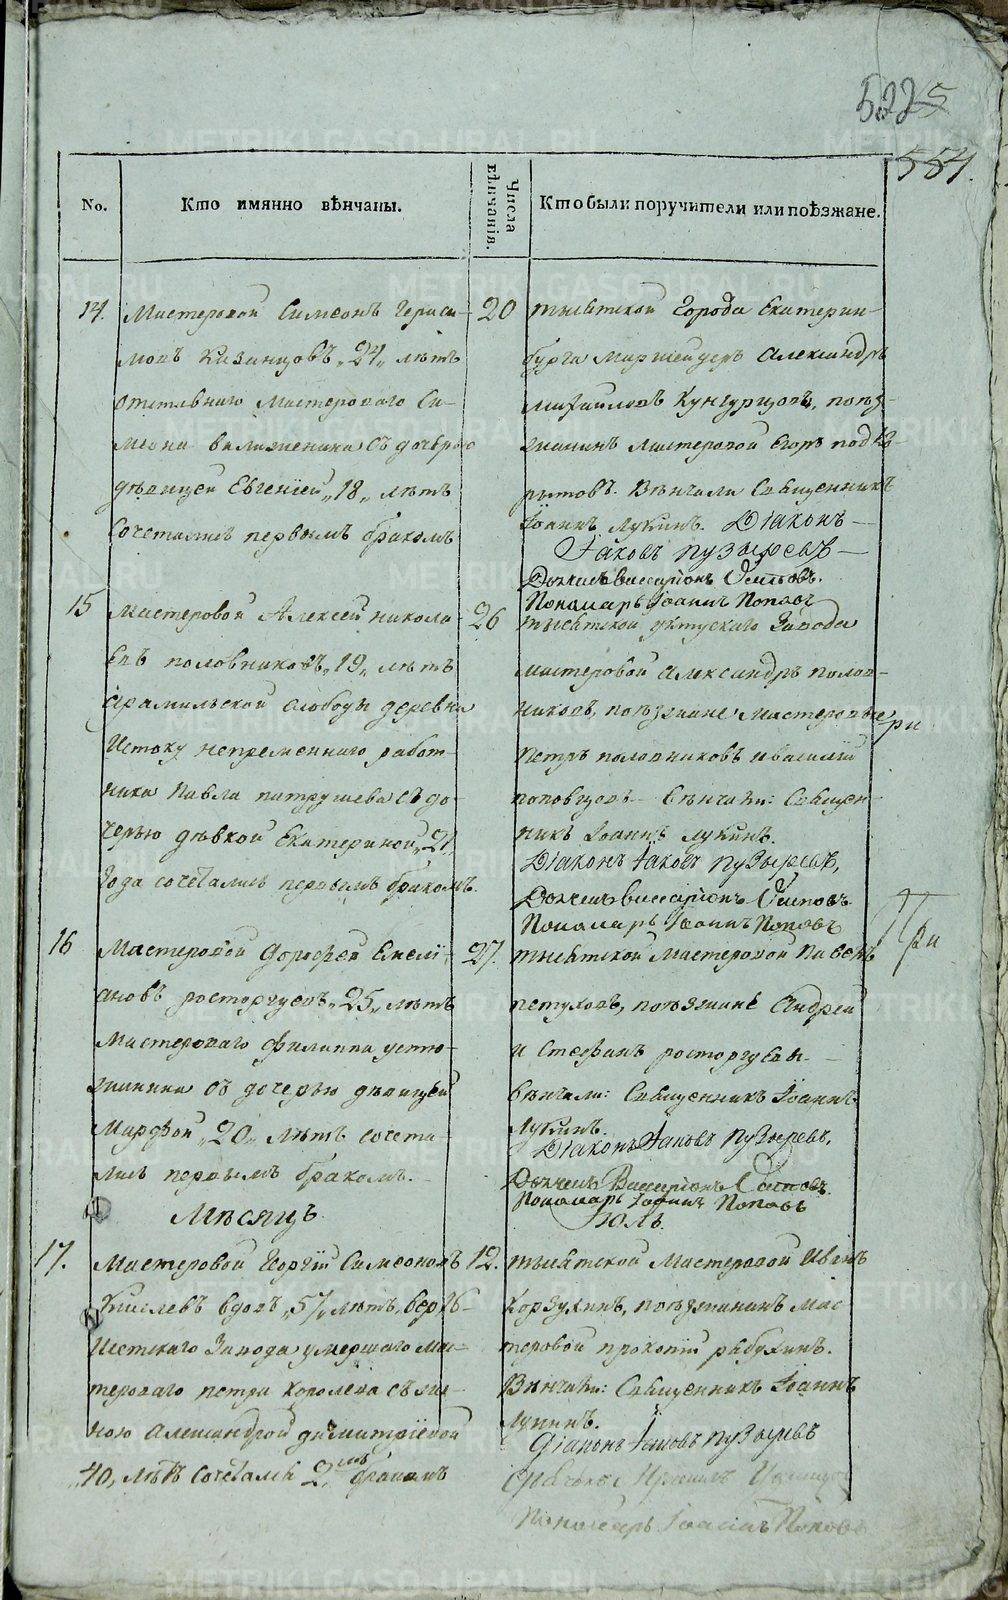 5225
554.
No.
Кто имянно вѣнчаны.
Числа вѣнчанія.
Кто были поручители или поѣзжане.
14.
Мастеровой Симеонъ Гераси-
мовъ Казанцовъ „24„ лѣтъ
отставнаго Мастероваго Си-
меона съ дочерью
дѣвицей Евгеніей „18„ лѣтъ
сочетались первымъ бракомъ
20
тысятской Города Екатерин-
бурга Маршейдеръ Александръ
Михайловъ Кунгурцовъ, поѣз-
жанинъ мастеровой Егоръ Подко-
рытовъ. Вѣнчали Священникъ
Іоаннъ Лукинъ. Діаконъ
Іаковъ Пузыревъ
Дьячекъ Виссаріонъ Осиповъ.
Пономарь Іоаннъ Поповъ
15
Мастеровой Алексей Никола-
евъ Половниковъ „19„ лѣтъ
Арамильской слободы деревни
Истоку непременнаго работ-
ника Павла Патрушева съ до-
черью дѣвкой Екатериной „21„
года сочетались первымъ бракомъ.
26
тысятской Уктускаго Завода
мастеровой Александръ Полов-
никовъ, поѣзжане Мастеровые
Петръ Половниковъ и Василій
Поповцовъ вѣнчали: Священ-
никъ Іоаннъ Лукинъ.
Діаконъ Іаковъ Пузыревъ,
Дьячекъ Виссаріонъ Осиповъ
Пономарь Іоаннъ Поповъ
16
Мастеровой Дорофей Емелі-
ановъ Расторгуевъ „25„ лѣтъ
Мастероваго Филиппа Устю-
жанина съ дочерью дѣвицей
Марфой „20„ лѣтъ сочета-
лись первымъ бракомъ.
27.
тысятской Мастеровой Павелъ
Петуховъ, поѣзжане Андрей
и Стефанъ Расторгуевы
вѣнчали: Священникъ Іоаннъ
Лукинъ.
Діаконъ Іаковъ Пузыревъ,
Дьячекъ Виссаріонъ Осиповъ
Пономарь Іоаннъ Поповъ
Мѣсяцъ
Юль.
17.
Мастеровой Георгій Симеоновъ
Киселевъ вдовъ „57„ лѣтъ, Верхъ-
Исетскаго Завода умершаго Мас-
тероваго Петра Королева съ же-
ною Александрой Димитріевой
„40„ лѣтъ сочетались 2мъ бракомъ
12.
тысятской Мастеровой Иванъ
Корзухинъ, поѣзжанинъ Мас
теровой Прокопій Рябухинъ.
Вѣнчали: Священникъ Іоаннъ
Лукинъ.
Діаконъ Іаковъ Пузыревъ
Пономарь Іоаннъ Поповъ